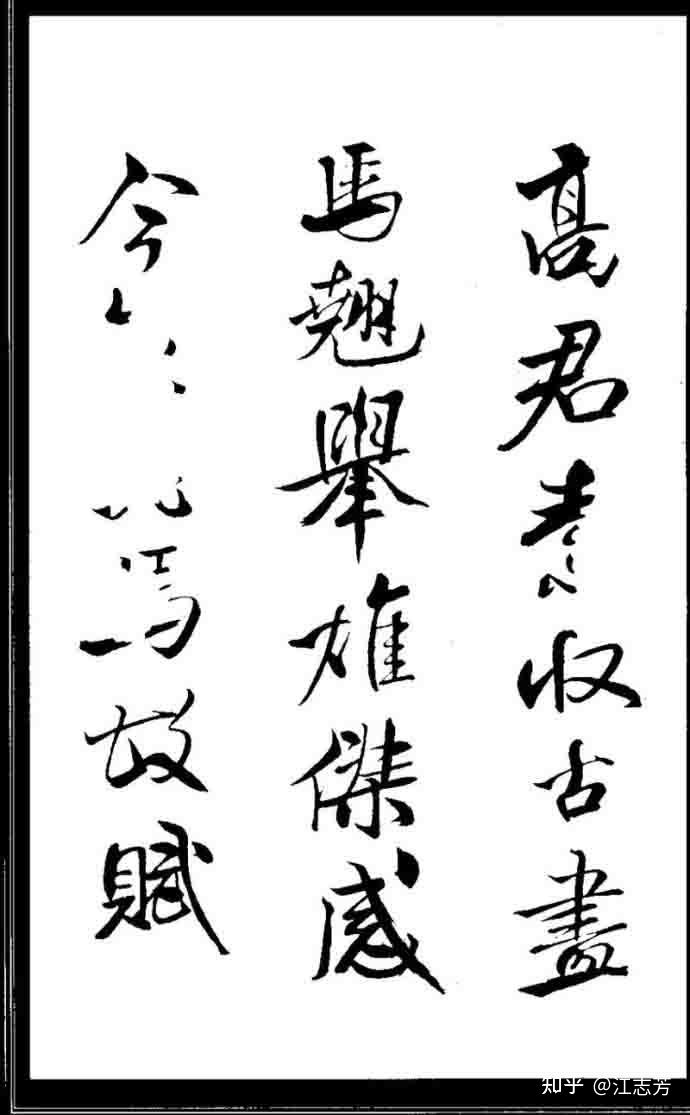 高君素收古畫
馬翹舉雄傑感
今馬故賦
知乎 @江志芳